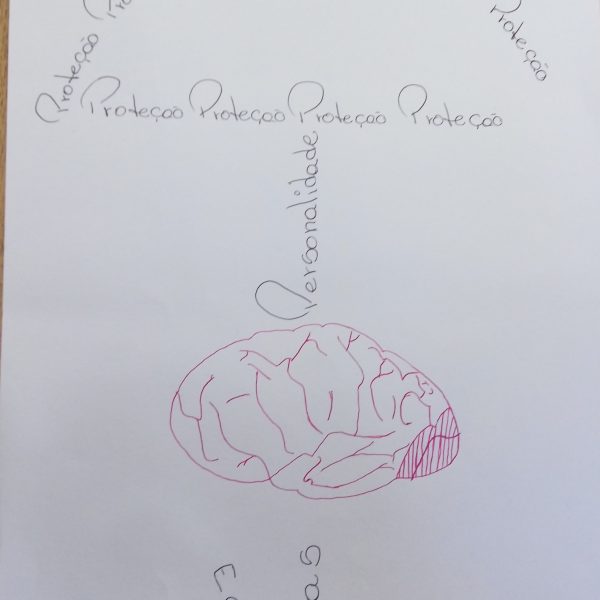 Proteção
Proteção
Proteção Proteção Proteção Proteção
Personalidade
as